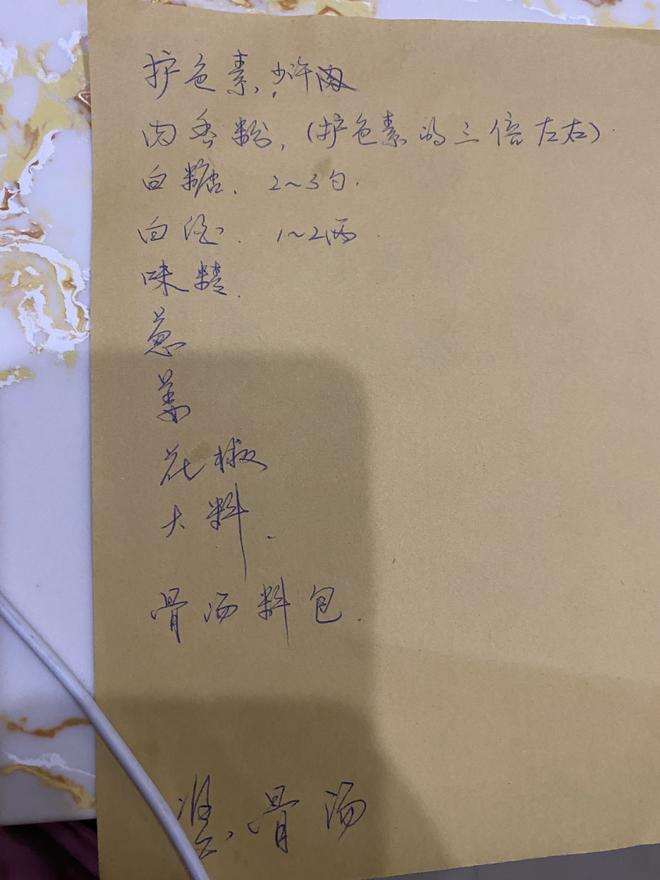 护色素,少许
肉香粉,(护色素的三倍左右)
白糖. 2~3勺.
白酒. 1~2两
味精.
葱
姜
花椒
大料.
骨汤料包.
骨汤